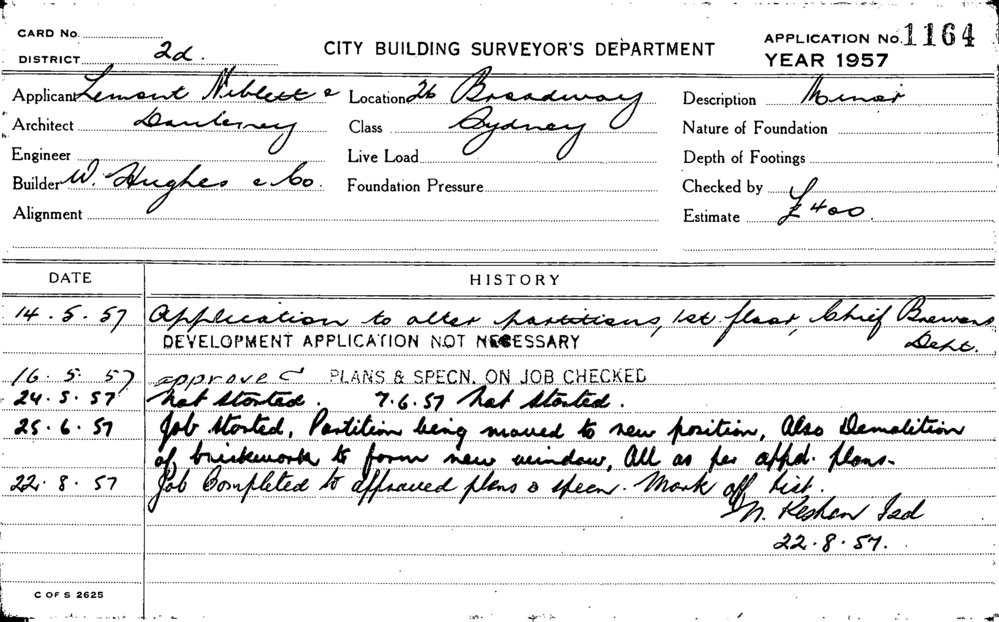 CARD No.
DISTRICT 2d.
CITY BUILDING SURVEYOR'S DEPARTMENT
APPLICATION No. 1164
YEAR 1957
Applicant Lemont Niblett &
Location 26 Broadway
Description Minor
Architect
Class Sydney
Nature of Foundation
Engineer
Live Load
Depth of Footings
Builder W. Hughes & Co.
Foundation Pressure
Checked by
Alignment
Estimate £400.
DATE HISTORY
14.5.57 Application to alter partitions, 1st. floor, Chief Brewers
Dept.
DEVELOPMENT APPLICATION NOT NECESSARY
16.5.57 approved PLANS & SPECN. ON JOB CHECKED
24.5.57 Not started. 7.6.57 Not started.
25.6.57 Job started, Partition being moved to new position, Also Demolition
of brickwork to form new window, All as per appd. plans.
22.8.57 Job Completed to approved plans & specn. Mark off list.
22.8.57.
C OF S 2625